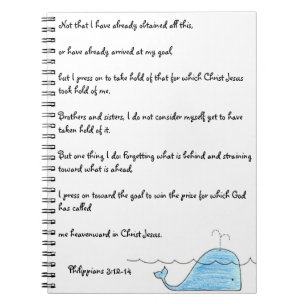 Not that I have already obtained all this,
or have already arrived at my goal,
but I press on to take hold of that for which Christ Jesus
took hold of me.
Brothers and sisters, I do not consider myself yet to have
taken hold of it.
But one thing I do: Forgetting what is behind and straining
toward what is ahead,
I press on toward the goal to win the prize for which God
has called
me heavenward in Christ Jesus.
Philippians 3:12-14